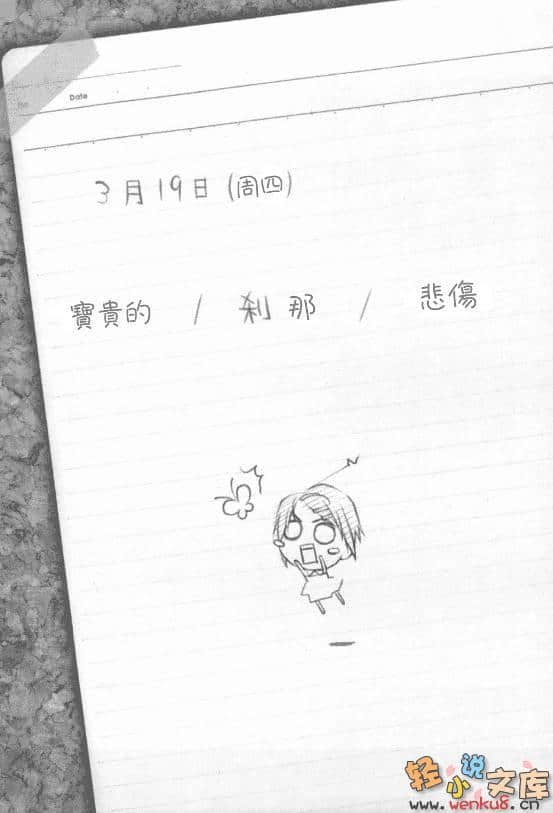 No.
Date
3月19日(周四)
寶貴的 / 刹那 / 悲傷
轻小说文库
www.wenku8.cn